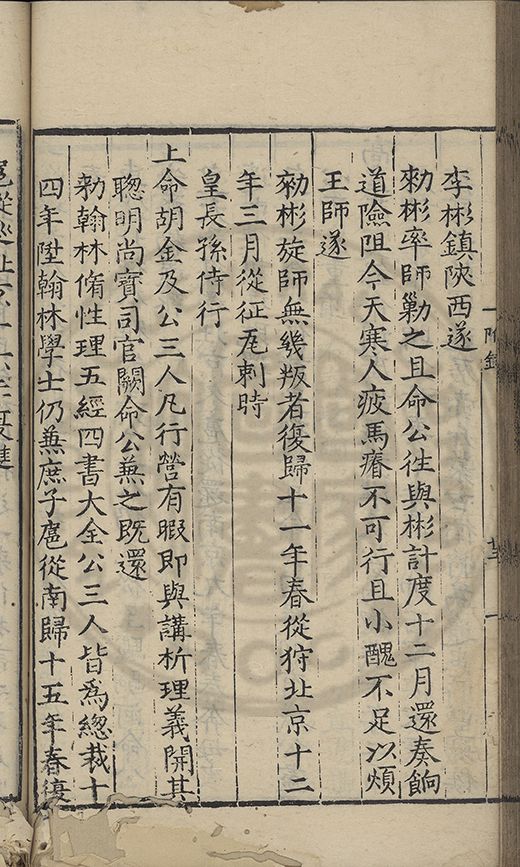 李彬鎮陝西遂
勑彬率師勦之且命公徃與彬計度十二月還奏餉
道險阻今天寒人疲馬瘠不可行且小醜不足以煩
王師遂
勑彬旋師無幾叛者復歸十一年春從狩北京十二
年三月從征瓦剌時
皇長孫侍行
上命胡金及公三人凡行營有暇即與講析理義開其
聰明尚寳司官闕命公兼之既還
勑翰林脩性理五經四書大全公三人皆為總裁十
四年陞翰林學士仍兼庶子扈從南歸十五年春復
扈從
附錄